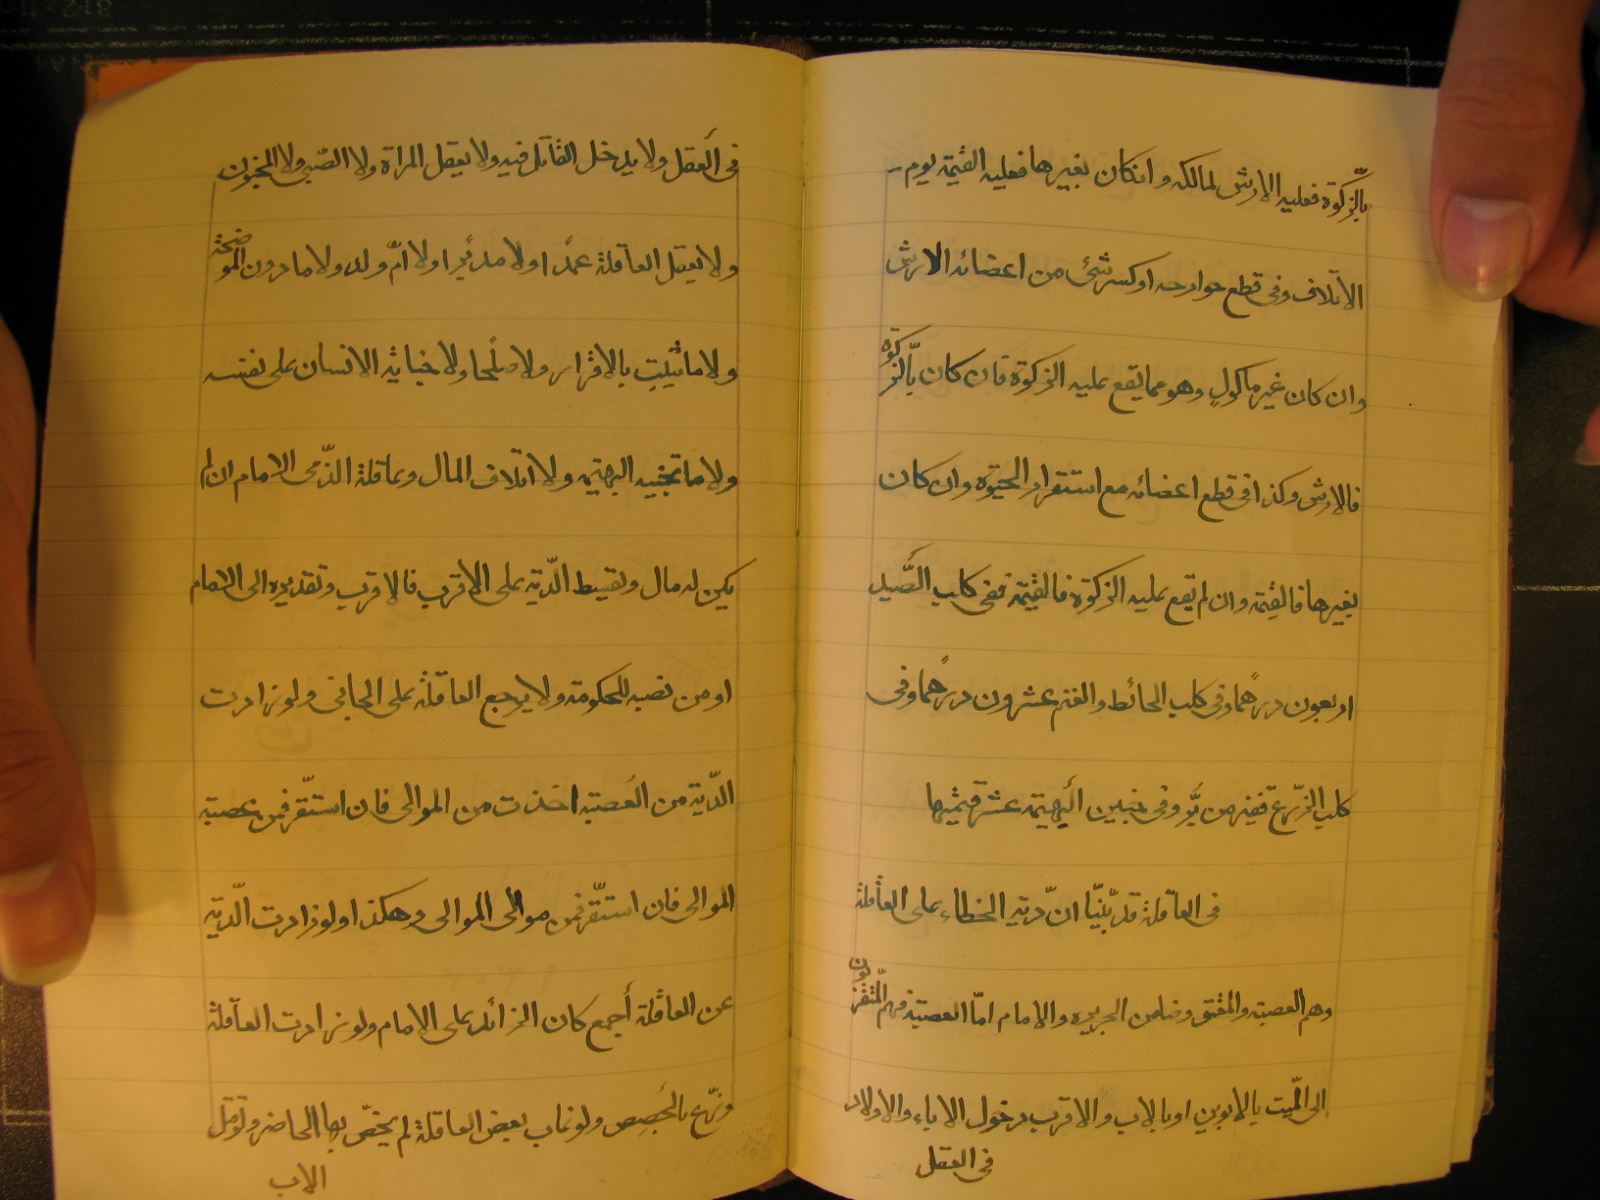 بالزكوة فعليه الارش لمالكه وانكان بغيرها فعليه القيمة يوم
الاتلاف وفى قطع جوارحه او كسر شئ من اعضائه الارش
وان كان غير ماكول وهو مما يقع عليه الزكوة فان كان بالزكوة
فالارش وكذا فى قطع اعضائه مع استقرار الحيوة وان كان
بغيرها فالقيمة وان لم يقع عليه الزكوة فالقيمة ففى كلب الصيد
اربعون درهما وفى كلب الحائط والغنم عشرون درهما وفى
كلب الزرع قفيز من بر وفى جنين البهيمة عشر قيمتها
فى العاقلة قد بينا ان دية الخطاء على العاقلة
وهم العصبة والمعتق وضامن الجريره والامام اما العصبة فهم المتقربون
الى الميت بالابوين او بالاب والاقرب دخول الاباء والاولاد
فى العقل
فى العقل ولا يدخل القاتل فيه ولا يعقل المراة ولا الصبى ولا المجنون
ولا يعقل العاقلة عمدا ولا مدبرا ولا ام ولد ولا ما دون الموضحة
ولا ما يثبت بالاقرار ولا صلحا ولا جناية الانسان على نفسه
ولا ما تجنيه البهيمه ولا اتلاف المال وعاقلة الذمى الامام ان لم
يكن له مال وتقسيط الدية على الاقرب فالاقرب وتقديره الى الامام
او من نصبه للحكومة ولا يرجع العاقلة على الجانى ولو زادت
الدية من العصبة اخذت من الموالى فان استقر فمن عصبة
الموالى فان استقر فمن موالى الموالى وهكذا ولو زادت الدية
عن العاقلة أجمع كان الزائد على الامام ولو زادت العاقلة
وزع بالحصص ولو غاب بعض العاقلة لم يخص بها الحاضر ولو قتل
الاب